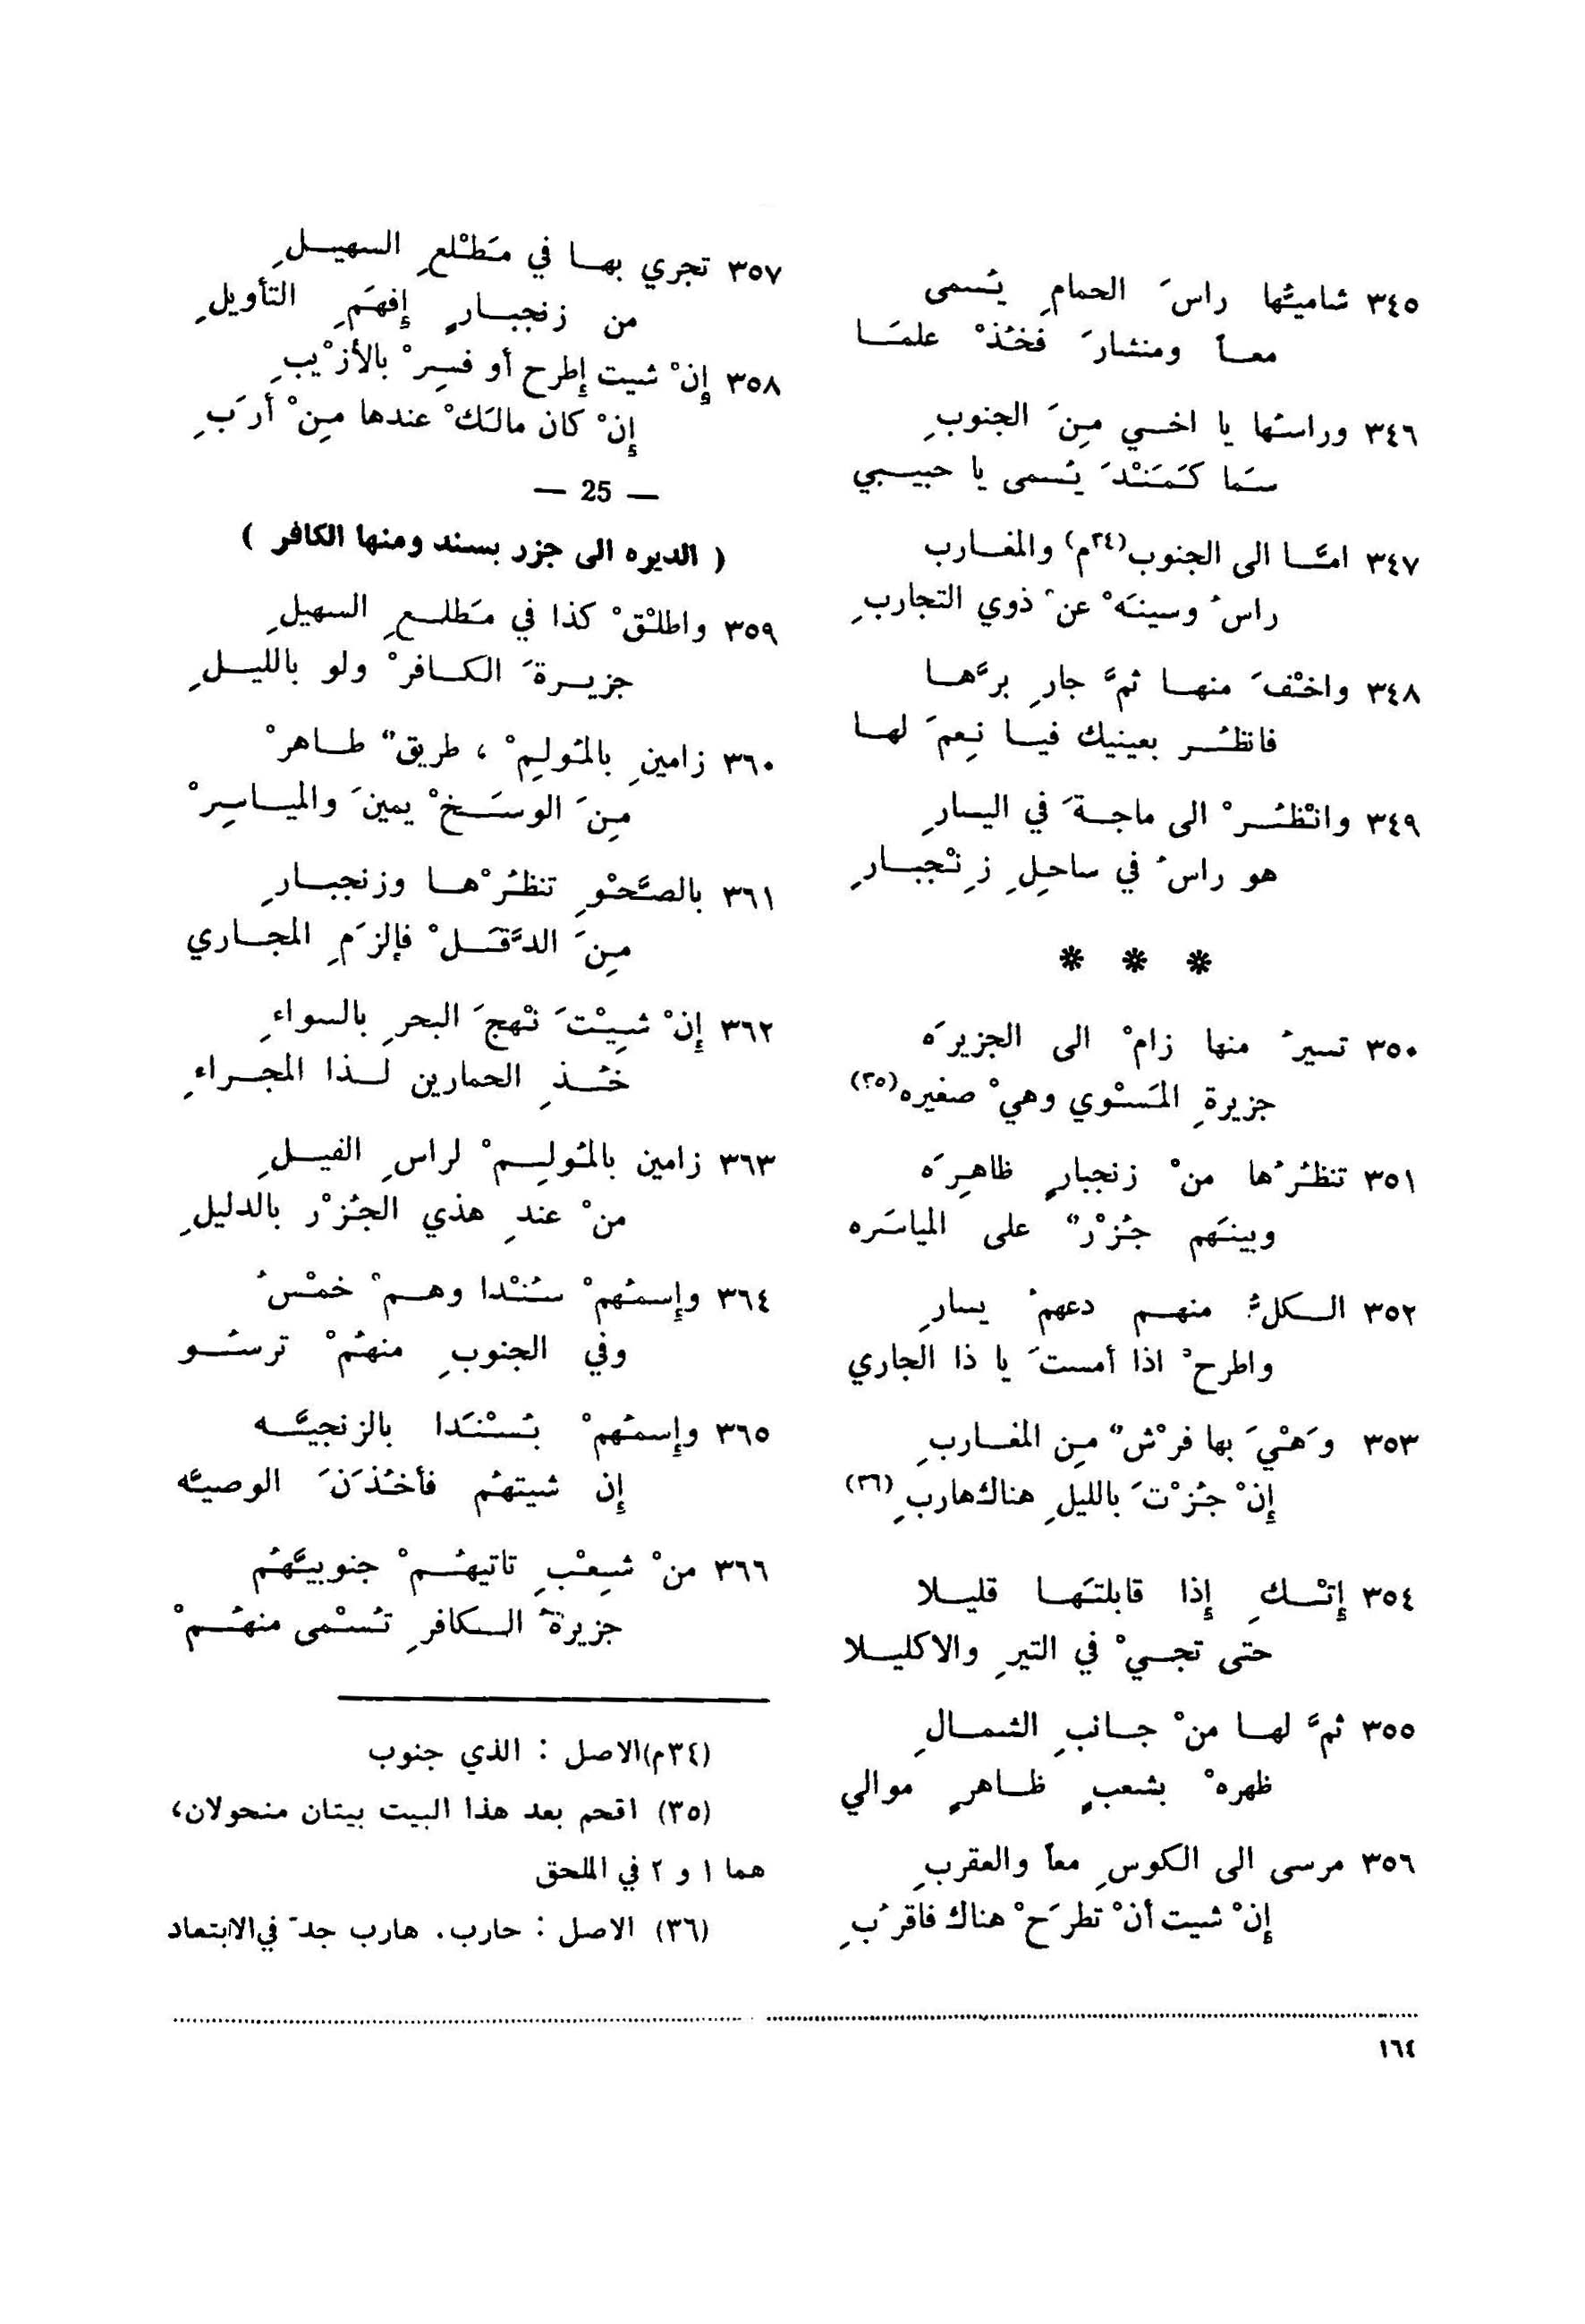 ٣٤٥ شاميُّها راسَ الحمامِ يُسمى
معاً ومنشارَ فخُذْ علمَا
٣٤٦ وراسُها يا اخي مِنَ الجنوبِ
سَما كَمَنْدَ يُسمى يا حبيبي
٣٤٧ امَّا الى الجنوب(٣٤م) والمغارب
راسُ وسينَهْ عنْ ذوي التجاربِ
٣٤٨ واخْفَ منها ثمَّ جارِ برَّها
فانظُر بعينيك فيا نِعمَ لها
٣٤٩ وانْظُرْ الى ماجةَ في اليسارِ
هو راسُ في ساحِلِ زِنْجبارِ
* * *
٣٥٠ تسيرُ منها زامْ الى الجزيرَه
جزيرةِ المَسْوي وهيْ صغيره(٣٥)
٣٥١ تنظُرُها منْ زنجبارٍ ظاهِرَه
وبينَهم جُزْرٌ على المياسَره
٣٥٢ الكلُّ منهم دعهمُ يسارِ
واطرحْ اذا أمستَ يا ذا الجاري
٣٥٣ وَهْيَ بها فرْشٌ مِن المغاربِ
إِنْ جُزْتَ بالليلِ هناك هاربِ(٣٦)
٣٥٤ إِتْكِ إِذا قابلتَها قليلا
حتى تجيْ في التيرِ والاكليلا
٣٥٥ ثمَّ لها منْ جانبِ الشمالِ
ظهرهْ بشعبٍ ظاهرٍ موالي
٣٥٦ مرسى الى الكوسِ معاً والعقربِ
إِنْ شيت أنْ تطرَحْ هناك فاقرُبِ
٣٥٧ تجري بها في مَطْلعِ السهيلِ
من زنجبارٍ إِفهَمِ التأويلِ
٣٥٨ إِنْ شيت إِطرح أو فسِرْ بالأزْيبِ
إِنْ كان مالَكْ عندها مِنْ أرَبِ
— 25 —
( الديره الى جزر بسند ومنها الكافر )
٣٥٩ واطلْقْ كذا في مَطلعِ السهيلِ
جزيرةَ الكافرْ ولو بالليلِ
٣٦٠ زامينِ بالمُولِمْ ، طريقٌ طاهرْ
مِنَ الوسَخْ يمينَ والمياسِرْ
٣٦١ بالصَّحْوِ تنظُرْها وزنجبارِ
مِنَ الدَّقَلْ فإلزَمِ المجاري
٣٦٢ إِنْ شِيْتَ نْهجَ البحرِ بالسواءِ
خُذِ الحمارين لذا المجراءِ
٣٦٣ زامين بالمُولِمْ لراسِ الفيلِ
منْ عندِ هذي الجُزْر بالدليلِ
٣٦٤ وإِسمُهمْ سُنْدا وهمْ خمْسُ
وفي الجنوبِ منهُمْ ترسُو
٣٦٥ وإِسمُهمْ بُسْنَدا بالزنجيَّه
إِن شيتهُم فأخُذَنَ الوصيَّه
٣٦٦ منْ شِعْبِ تاتيهُمْ جنوبيَّهُم
جزيرةُ الكافرِ تُسْمى منهُمْ
(٣٤م)الاصل : الذي جنوب
(٣٥) اقحم بعد هذا البيت بيتان منحولان،
هما ١ و ٢ في الملحق
(٣٦) الاصل : حارب. هارب جدَّ في الابتعاد
١٦٤